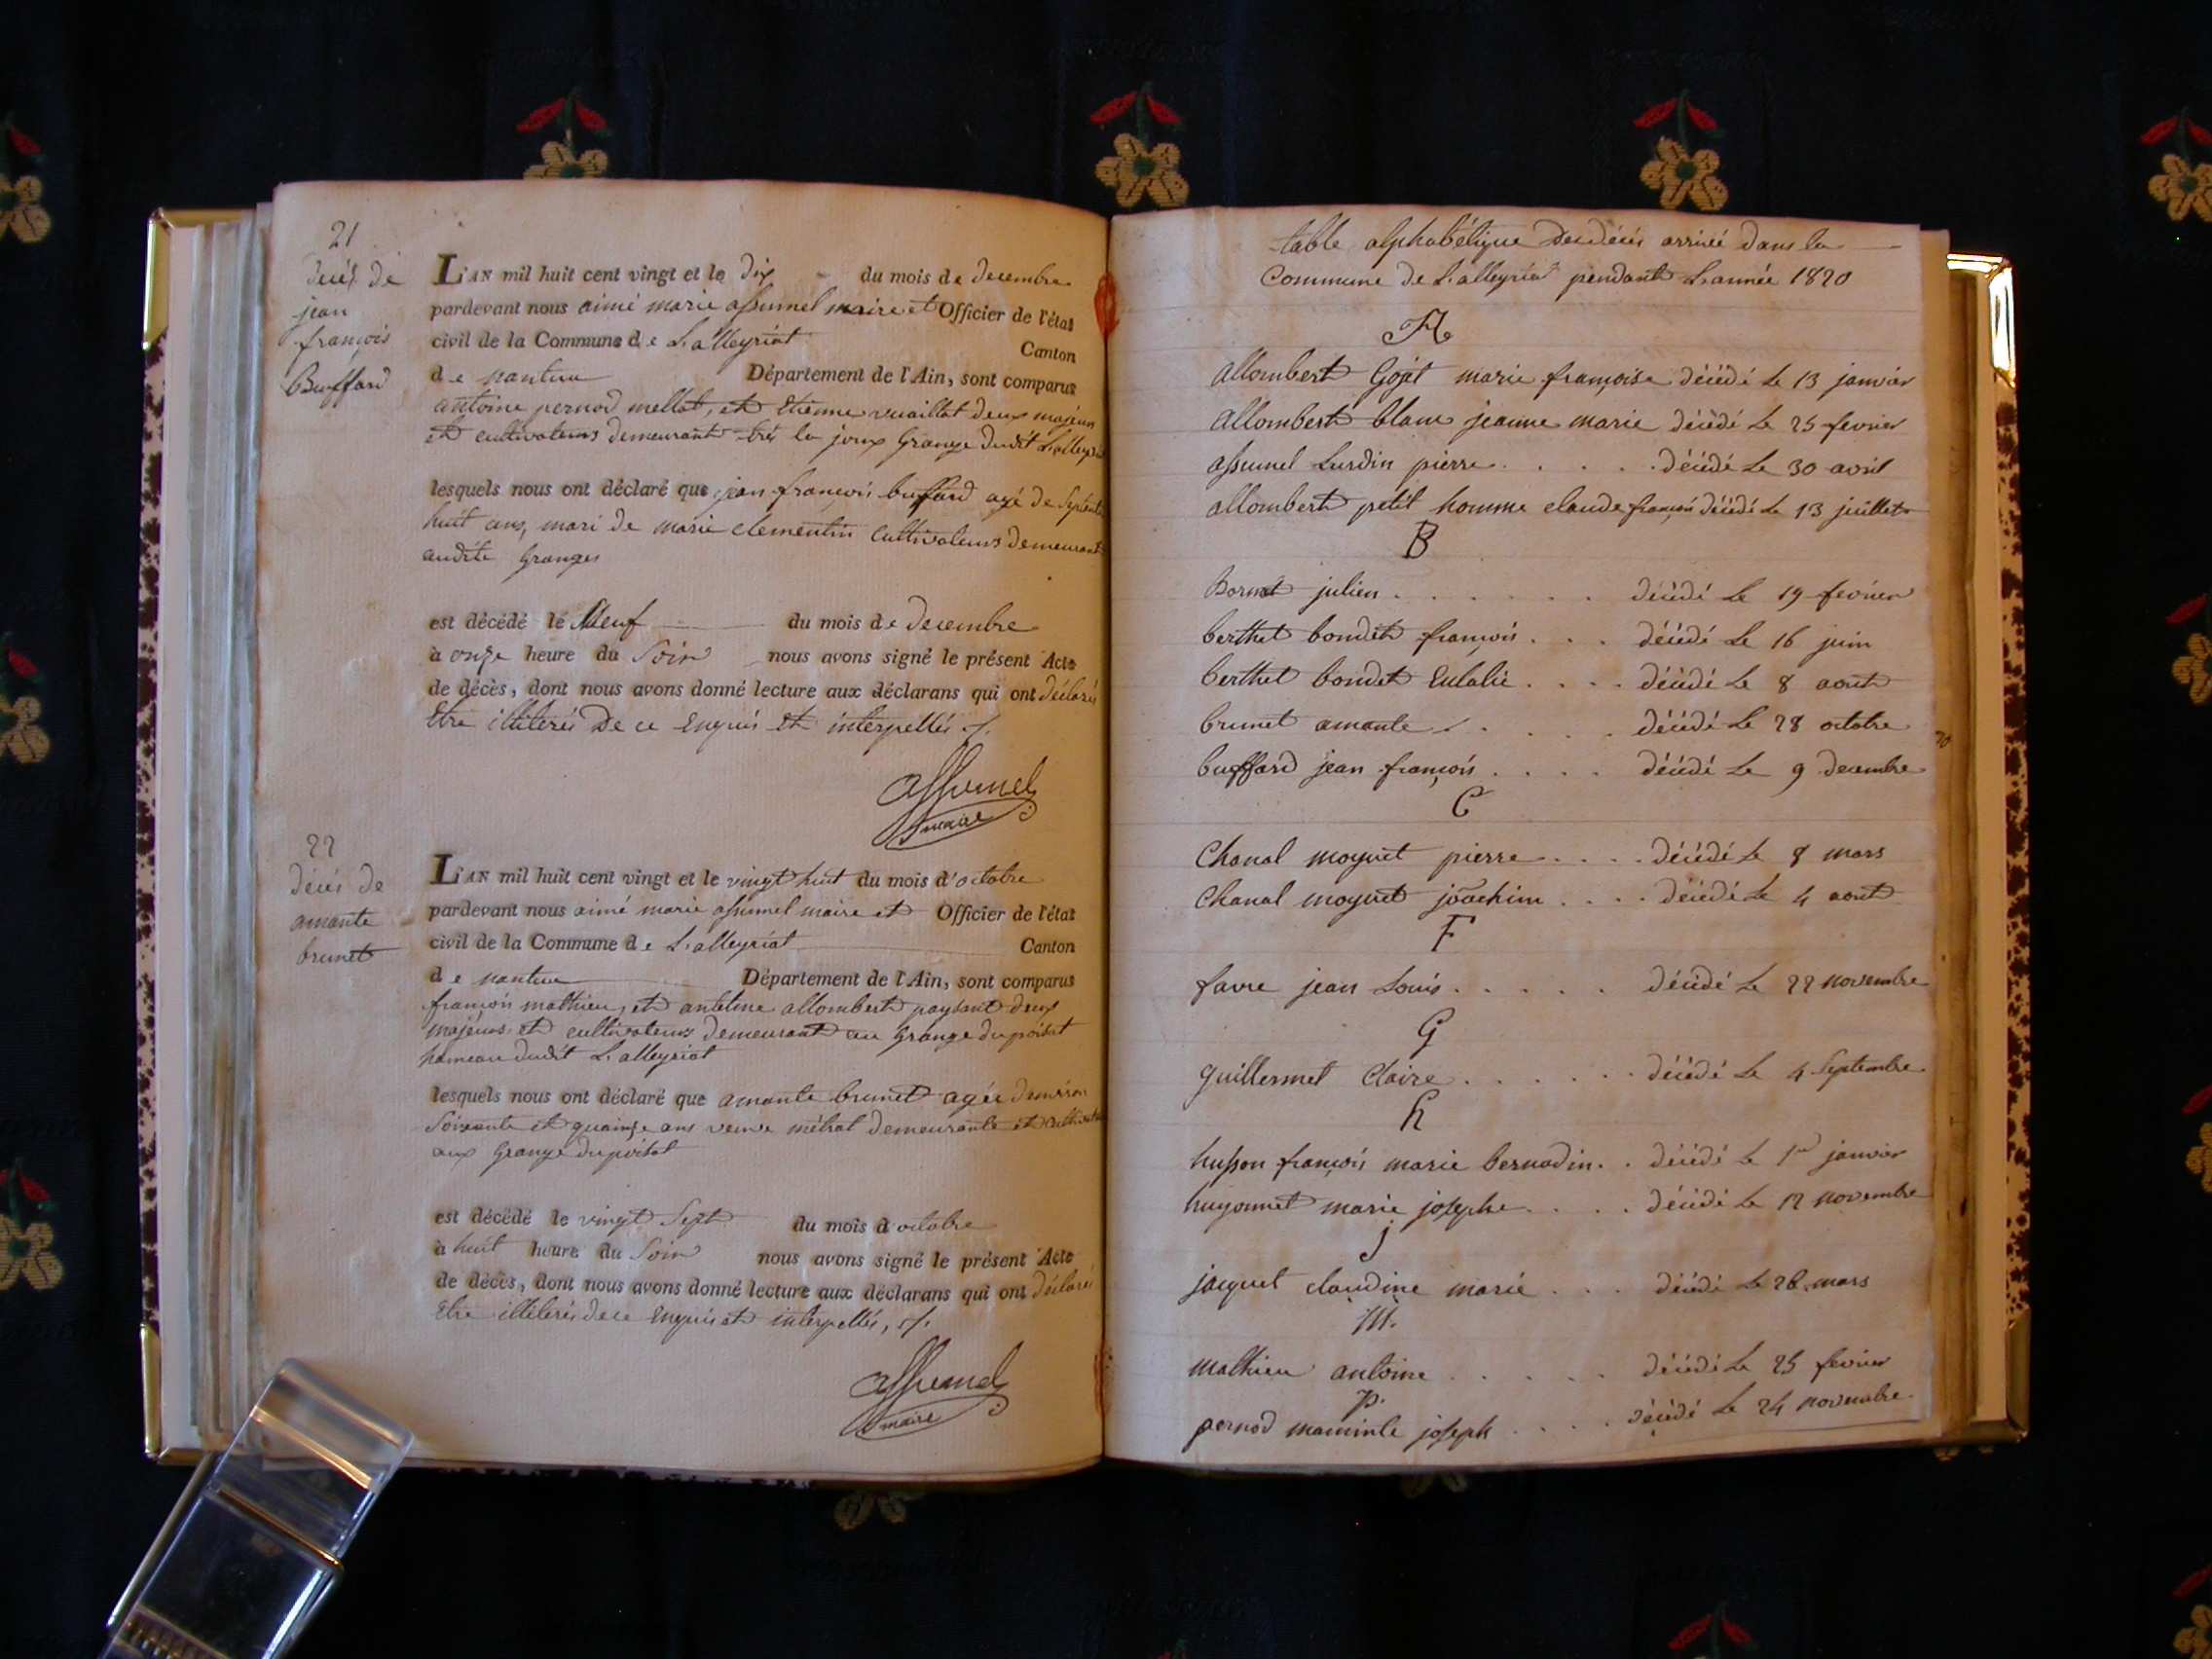 21
décés de
jean
françois
Buffard
L'AN mil huit cent vingt et le dix du mois de decembre
pardevant nous aimé marie assumel maire et Officier de l'état
civil de la Commune de L'alleyriat
Canton
de nantua Département de l'Ain, sont comparus
antoine pernod mellat, et Etienne vuaillat deux majeurs
et cultivateurs demeurant la joux Grange dudit L'alleyriat
lesquels nous ont déclaré que jean françois buffard agé de septente
huit ans, mari de marie clementin cultivateurs demeurant
audite Granges
est décédé le Neuf du mois de decembre
à onze heure du Soir nous avons signé le présent Acte
de décès, dont nous avons donné lecture aux déclarans qui ont déclarés
Etre illiterés De ce Enquis Et interpellés ./.
assumel
maire
22
décés de
amante
brunet
L'AN mil huit cent vingt et le vingt huit du mois d'octobre
pardevant nous aimé marie assumel maire et Officier de l'état
civil de la Commune de L'alleyriat Canton
de nantua Département de l'Ain, sont comparus
françois mathieu, et antelme allombert paysant deux
majeurs et cultivateurs demeurant au Grange du poisat
hameau dudit L'alleyriat
lesquels nous ont déclaré que amante brunet agée denviron
Soixante et quainze ans veuve métrat demeurante et
aux Grange du poisat
est décédé le vingt Sept du mois d octobre
à huit heure du Soir nous avons signé le présent Acte
de décès, dont nous avons donné lecture aux déclarans qui ont déclarés
Etre illiterés de ce Enquis et interpellés, ./.
assumel
maire
table alphabétique des décés arrivé dans la
Commune de L'alleyriat pendant L'année 1820
A
allombert Gojat marie françoise décédé le 13 janvier
allombert blanc jeanne marie décédé le 25 fevrier
assumel Lurdin pierre . . . . . décédé Le 30 avril
allombert petit homme claude françois décédé Le 13 juillet
B
Bornet julien . . . . . . décédé Le 19 fevrier
berthet bondet françois . . . décédé Le 16 juin
berthet bondet Eulalie . . . . décédé Le 8 aout
brunet amante . . . . . décédé Le 28 octobre
buffard jean françois . . . . décédé Le 9 decembre
C
Chanal moguet pierre . . . . décédé Le 8 mars
Chanal moguet joachim . . . . décédé Le 4 aout
F
favre jean Louis . . . . . décédé Le 22 novembre
G
guillermet Claire . . . . . . décédé Le 4 Septembre
h
husson françois marie bernadin . . décédé Le 1er janvier
hugonnet marie josephe . . . . décédé Le 12 novembre
j
jacquet claudine marie . . . décédé Le 26 mars
M.
mathieu antoine . . . . . décédé Le 25 fevrier
p.
pernod joseph . . . . décédé Le 24 novembre